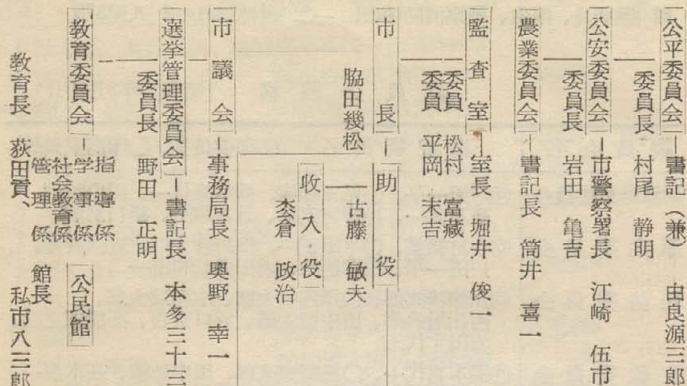 公平委員会 書記(兼) 由良源三郎
委員長 村尾 静明
公安委員会 市警察署長 江崎 伍市
委員長 岩田 亀吉
農業委員会 書記長 筒井 喜一
監査室 室長 堀井 俊一
委員 松村 富藏
委員 平岡 末吉
市長 助役
脇田幾松 古藤 敏夫
収入役
枩倉 政治
市議会 事務局長 奥野 幸一
選挙管理委員会 書記長 本多三十三
委員長 野田 正明
教育委員会 指導係
学事係 公民館
社会教育係
管理係 館長 私市八三郎
教育長 荻田貢、